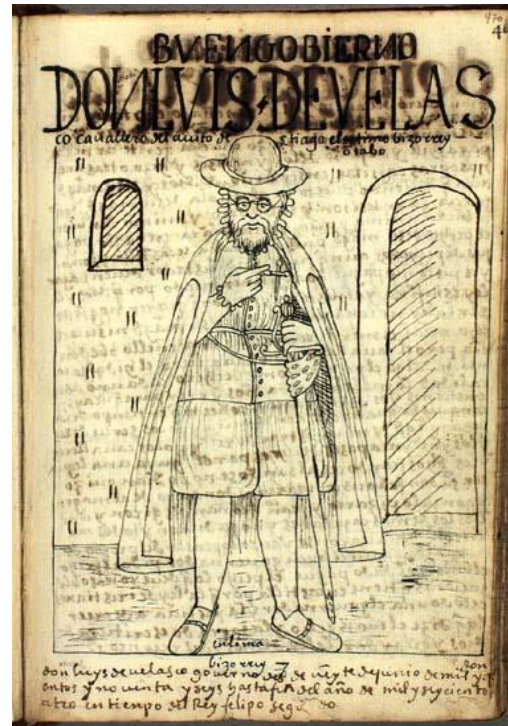 470
BVENGOBIERNO
DONLVIS·DEVELAS
co cauallero del auito de stiago el setimo bizorrey
o sabo
ultima
bizorrey 7 don
don luys de uelasco governo des de ueyte de junio de mil y
entos y nouenta y seys hasta fin del año de mil y seyciento
atro en tiempo del Rey felipo segu no